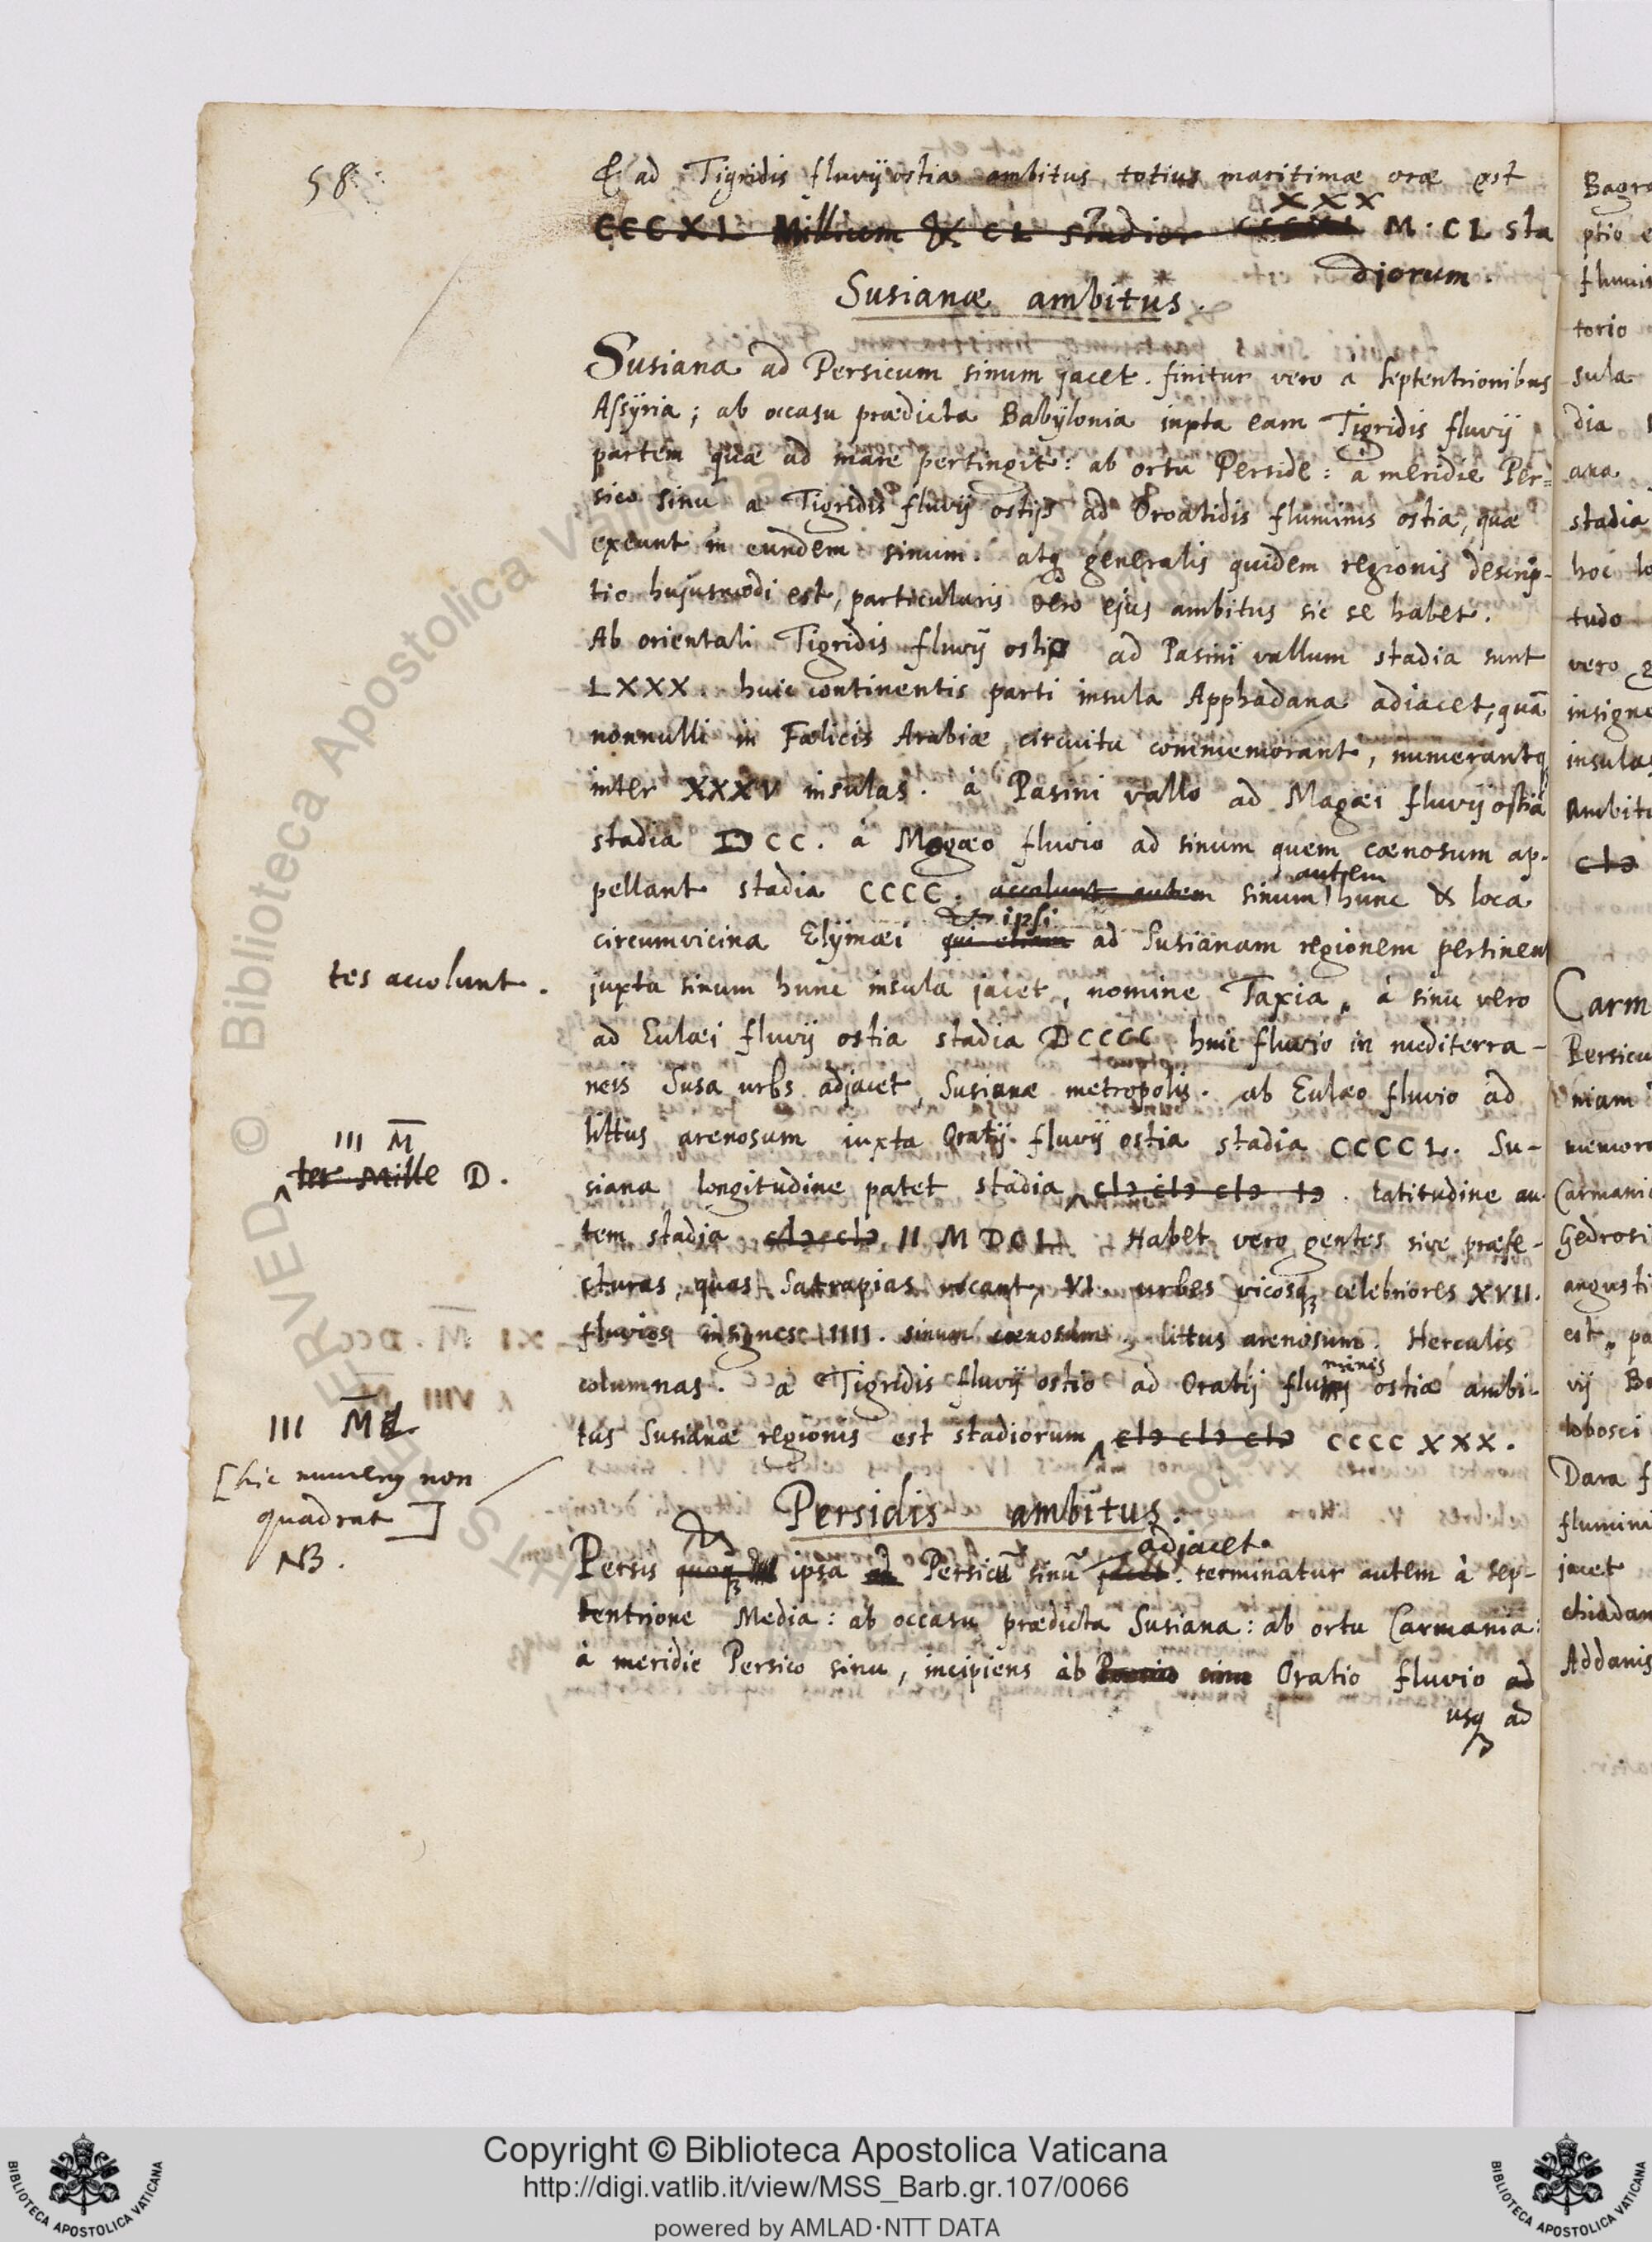 58.
& ad Tigridis fluvij ostia ambitus totius maritimæ oræ est
XXX
CCCXL Millium & CL stadior CCCXL M. CL sta
djorum.
Susianæ ambitus.
Susiana ad Persicum sinum jacet. finitur vero a septentrionibus
Assyria; ab occasu prædicta Babylonia iuxta eam Tigridis fluvij
partem quæ ad mare pertingit: ab ortu Perside: a meridie Per=
sico sinu a Tigridis fluvij ostijs ad Oroatidis fluminis ostia, quæ
exeunt in eundem sinum. atq; generalis quidem regionis descrip-
tio hujusmodi est, particularis vero ejus ambitus sic se habet.
Ab orientali Tigridis fluvij ostio ad Pasini vallum stadia sunt
LXXX. huic continentis parti insula Apphadana adiacet, quā
nonnulli in Fælicis Arabiæ circuitu commemorant, numerantq;
inter XXXV insulas. à Pasini vallo ad Magæi fluvij ostia
stadia DCC. a Mogæo fluvio ad sinum quem cænosum ap-
pellant stadia CCCC. accolunt autem sinum autem hunc & loca
circumvicina Elymæi qui etiam & ipsi ad Susianam regionem pertinen
tes accolunt.
juxta sinum hunc insula jacet, nomine Taxia, à sinu vero
ad Eulæi fluvij ostia stadia DCCCC huic fluvio in mediterra-
neis Susa urbs adjacet, Susianæ metropolis. ab Eulæo fluvio ad
littus arenosum iuxta Oratij fluvij ostia stadia CCCCL. Su-
III M̅
ter Mille D.
siana longitudine patet stadia cIɔ cIɔ cIɔ Iɔ. latitudine au-
tem stadia cIɔ cIɔ II M DCL. Habet vero gentes sive præfe-
cturas, quas Satrapias vocant, VI. urbes vicosq; celebriores XVII.
fluvios insignes IIII. sinum cænosum, littus arenosum. Herculis
columnas. a Tigridis fluvij ostio ad Oratij fluminis ostia ambi-
III M̅
tus Susianæ regionis est stadiorum cIɔ cIɔ cIɔ CCCC XXX.
[hic numerus non
quadrat]
NB.
Persidis ambitus.
Persis quoq; & ipsa ad Persicū sinū jacet adjacet. terminatur autem à sep-
tentrione Media: ab occasu prædicta Susiana: ab ortu Carmania:
à meridie Persico sinu, incipiens ab sinu Oratio fluvio ad
usq; ad
Bagra
ptio e
fluvis
torio
sula
dia
ana
stadia
hoc lo
tudo
vero
insigne
insulas
Ambitu
cIɔ
Carm
Persicu
niam
memora
Carmani
Gedrosi
angusti
est, pa
vij Ba
lobosci
Dara f
flumini
jacet
chiadan
Addanis
© Biblioteca Apostolica Vaticana
Copyright © Biblioteca Apostolica Vaticana
http://digi.vatlib.it/view/MSS_Barb.gr.107/0066
powered by AMLAD·NTT DATA
BIBLIOTECA APOSTOLICA VATICANA
BIBLIOTECA APOSTOLICA VATICANA